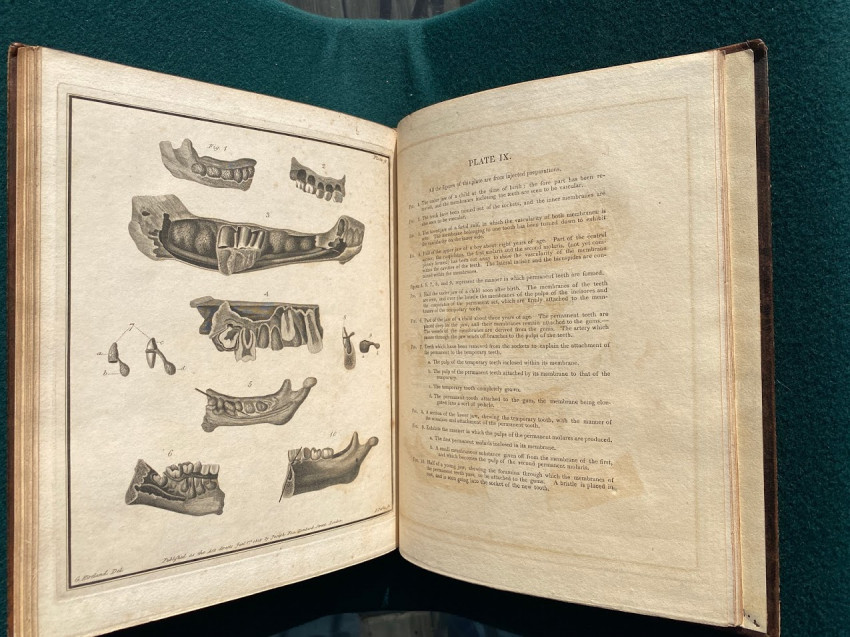 Fig. 1
2
3
4
7
a
b
c
d
5
6
10
Published as the Act directs
London
Del.
PLATE IX.
All the figures of this plate are from injected preparations.
of a child at the time of birth; the fore part has been re-
moved, and the membranes inclosing the teeth are seen to be vascular.
The teeth have been turned out of the sockets, and the inner membranes are
also seen to be vascular.
of a fœtal calf, in which the vascularity of both membranes is
seen. The membrane belonging to one tooth has been turned down to exhibit
the vascularity on the inner side.
of a boy about eight years of age. Part of the central
the first molaris and the second molaris, (not yet com-
to show the vascularity of the membrane
of the teeth. The lateral incisor and the bicuspides are con-
tained within the membranes.
Figures 5, 6, 7, 8, and 9, represent the manner in which permanent teeth are formed.
of a child soon after birth. The membranes of the teeth
the membranes of the pulps of the incisores and
of the permanent set, which are firmly attached to the mem-
branes of the temporary teeth.
Part of the jaw of a child about three years of age. The permanent teeth are
placed deep in the jaw, and their membranes remain attached to the gums.
The vessels of the membranes are derived from the gums. The artery which
passes through the jaw sends off branches to the pulps of the teeth.
Fig. 7. Teeth which have been removed from the sockets to explain the attachment of
the permanent to the temporary teeth.
a. The pulp of the temporary tooth inclosed within its membrane.
b. The pulp of the permanent tooth attached by its membrane to that of the
temporary.
c. The temporary tooth completely grown.
d. The permanent tooth attached to the gum, the membrane being elon-
gated into a sort of pedicle.
Fig. 8. A section of the lower jaw, shewing the temporary teeth, with the manner of
the situation and attachment of the permanent teeth.
Fig. 9. Exhibits the manner in which the pulps of the permanent molares are produced.
a. The first permanent molaris inclosed in its membrane.
b. A small membranous substance given off from the membrane of the first,
and which becomes the pulp of the second permanent molaris.
Fig. 10. Half of a young jaw, shewing the foramina through which the membranes of
the permanent teeth pass, to be attached to the gums. A bristle is placed in
one, and is seen going into the socket of the new tooth.